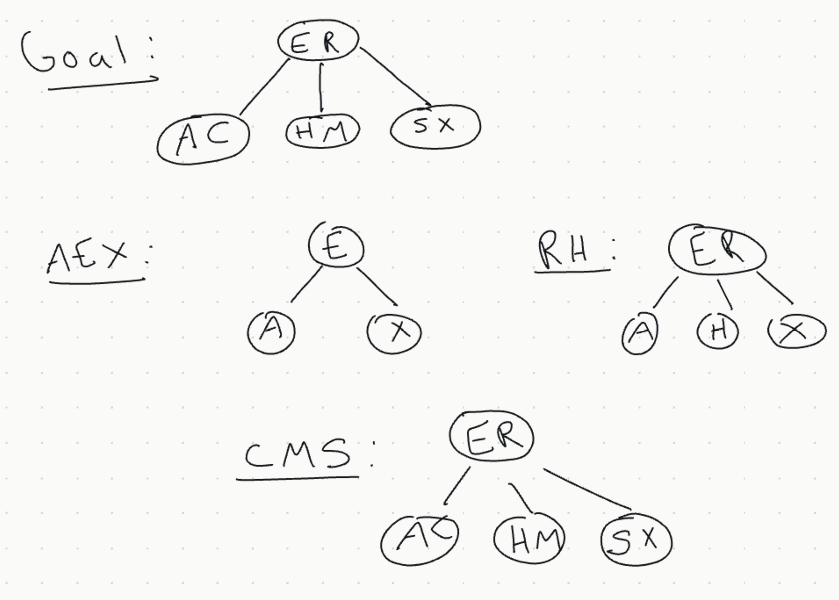 Goal: ER
AC HM SX
AEX: E RH: ER
A X A H X
CMS: ER
AC HM SX